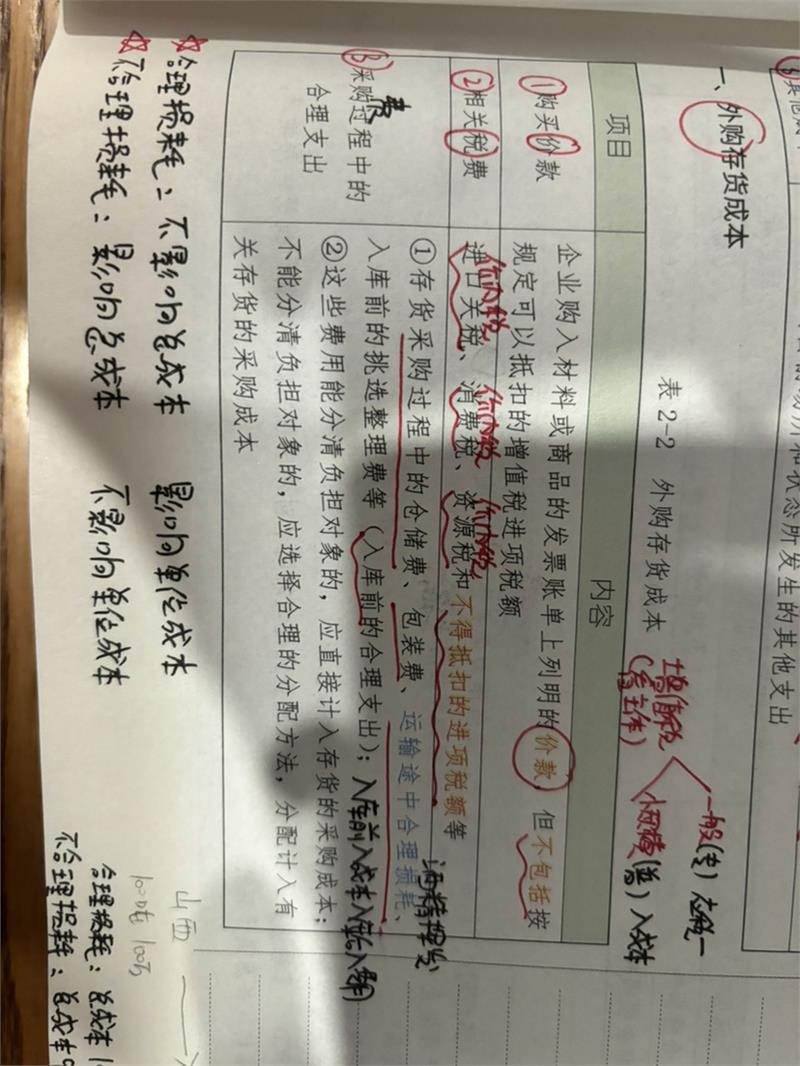 一、外购存货成本
表 2-2 外购存货成本
项目
内容
①购买价款
企业购入材料或商品的发票账单上列明的价款，但不包括按
规定可以抵扣的增值税进项税额
②相关税费
进口关税、消费税、资源税和不得抵扣的进项税额等
价内税 价内税 价内税
③采购过程中的
合理支出
费
①存货采购过程中的仓储费、包装费、运输途中合理损耗、
入库前的挑选整理费等（入库前的合理支出）；
②这些费用能分清负担对象的，应直接计入存货的采购成本；
不能分清负担对象的，应选择合理的分配方法，分配计入有
关存货的采购成本
所发生的其他支出
增值税
一般(专)
小规模(普)入成本
入库前入成本
☆合理损耗：不影响总成本 影响单位成本
☆不合理损耗：影响总成本 不影响单位成本
山西
100吨 100万
合理损耗：总成本
不合理损耗：总成本